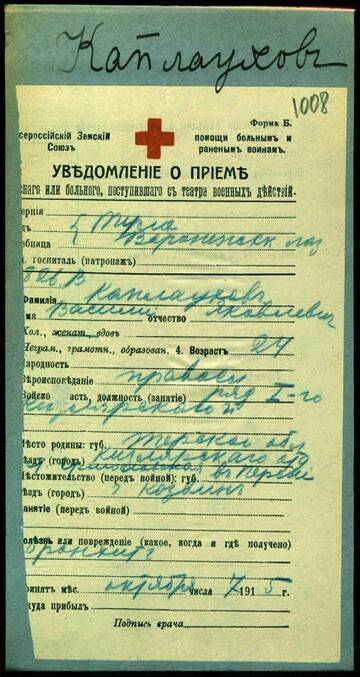 Каплаухов
1008
Форма Б.
сероссійскій Земскій
Союзъ
помощи больнымъ и
раненымъ воинамъ.
УВѢДОМЛЕНІЕ О ПРІЕМѢ
наго или больного, поступившаго съ театра военныхъ дѣйствій.
ернія
дъ
ебница Воронежск лаз
госпиталь (патронажъ)
Фамилія Каплауховъ
мя Василій отчество Яковлевич
Хол., женат., вдовъ
Неграм., грамотн., образован. 4. Возрастъ 24
Народность
Вѣроисповѣданіе правосл
Войско асть, должность (занятіе) ряд I-го
кизлярскаго
Мѣсто родины: губ. Терской обл
ѣздъ (городъ) Кизлярскаго
Мѣстожительство (передъ войной): губ. в Персіи
ѣздъ (городъ) г Козвин
Занятіе (передъ войной)
Болѣзнь или поврежденіе (какое, когда и гдѣ получено)
бронхитъ
ринятъ мѣс. октября числа 7 1915 г.
куда прибылъ
Подпись врача